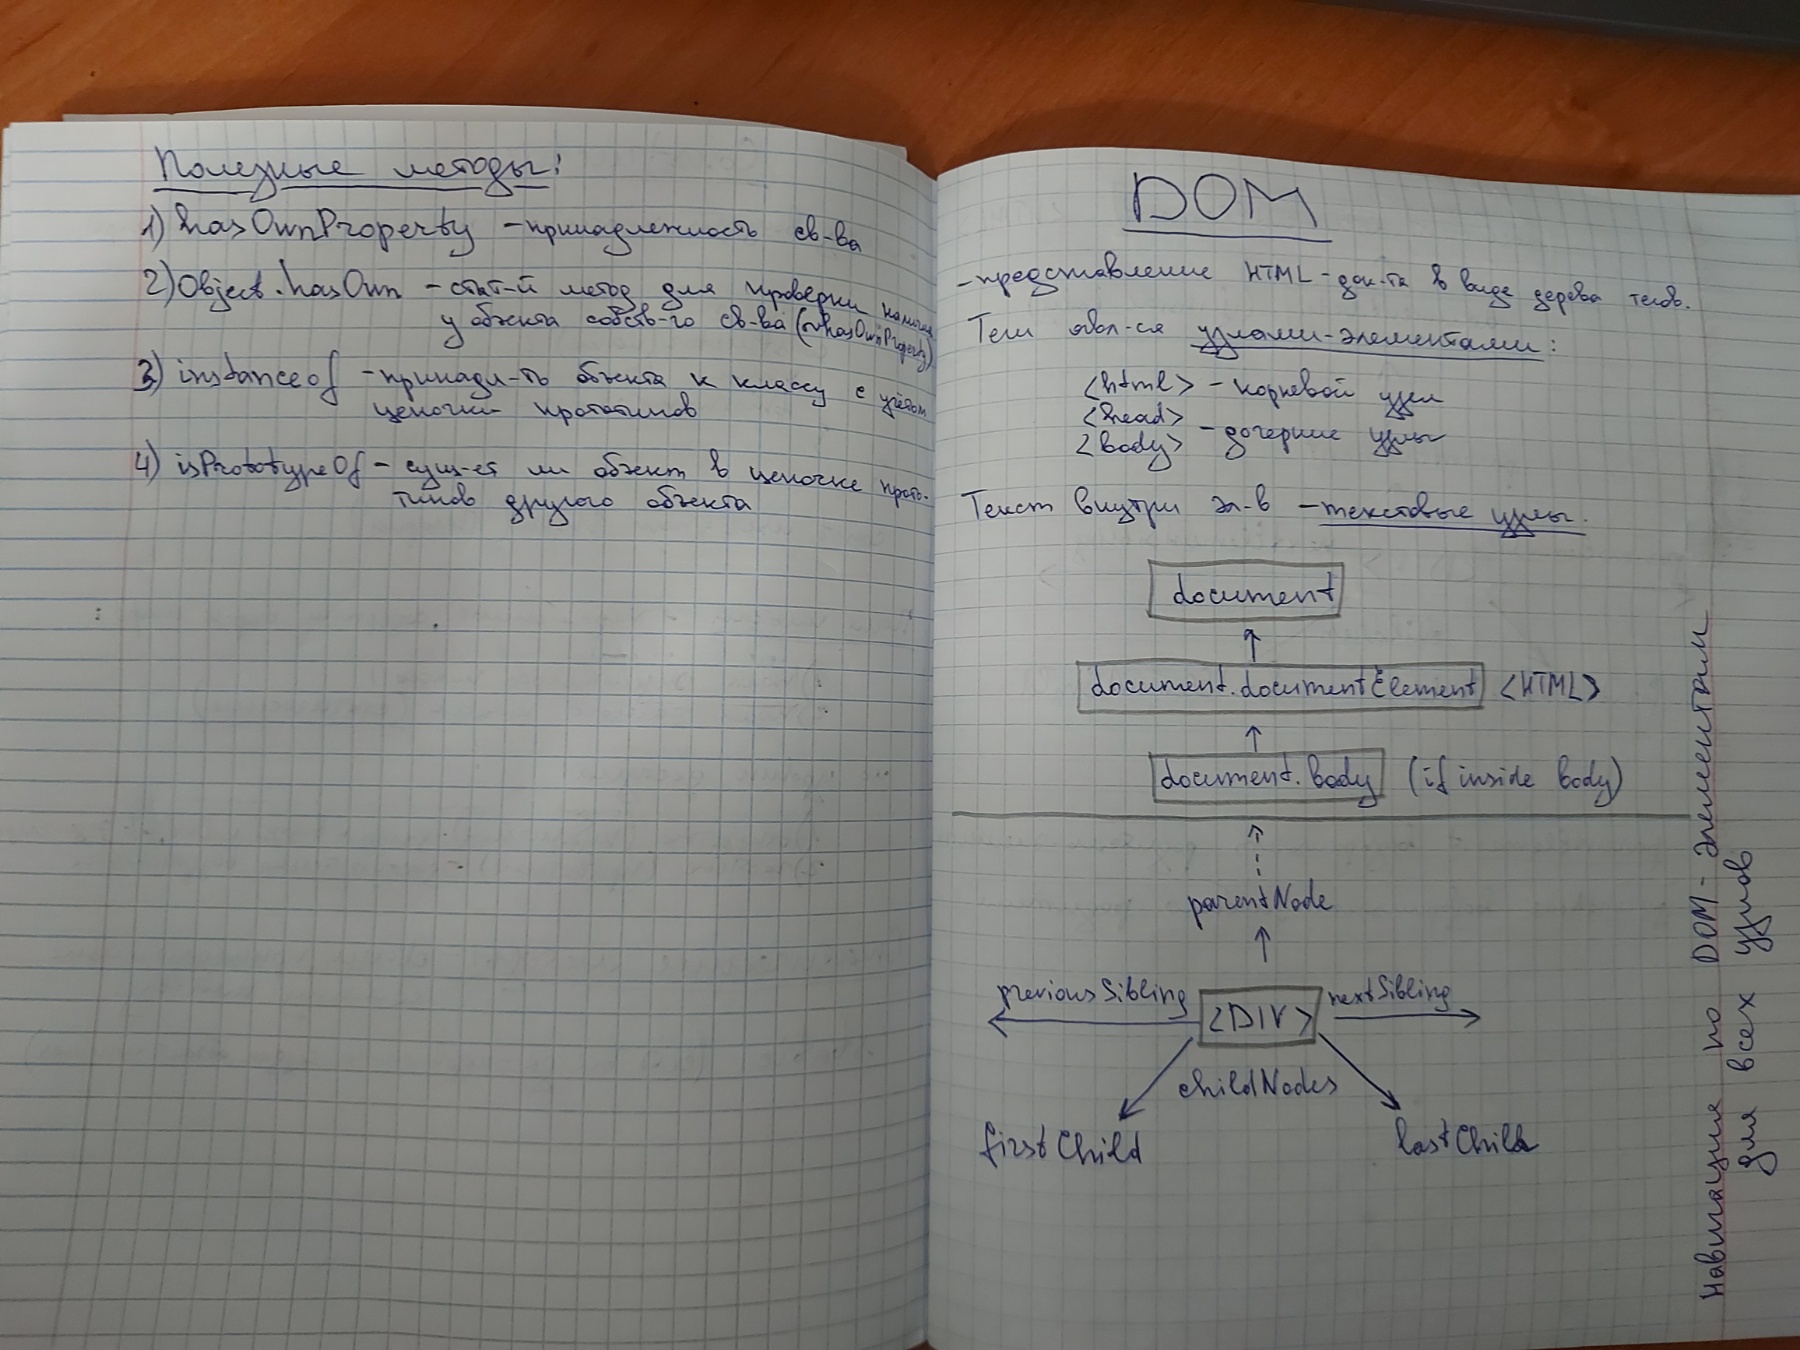 Полезные методы:
1) hasOwnProperty - принадлежность св-ва
2) Object.hasOwn - стат-й метод для проверки наличия
у объекта собств-го св-ва (~hasOwnProperty)
3) instanceof - принадл-ть объекта к классу с учётом
цепочки прототипов
4) isPrototypeOf - сущ-ет ли объект в цепочке прото-
типов другого объекта
DOM
- представление HTML-док-та в виде дерева тегов.
Теги явл-ся узлами-элементами:
<html> - корневой узел
<head>
<body> - дочерние узлы
Текст внутри эл-в - текстовые узлы.
document
↑
document.documentElement <HTML>
↑
document.body (if inside body)
parentNode
↑
previousSibling <DIV> nextSibling
childNodes
firstChild lastChild
Навигация по DOM-элементам
для всех узлов